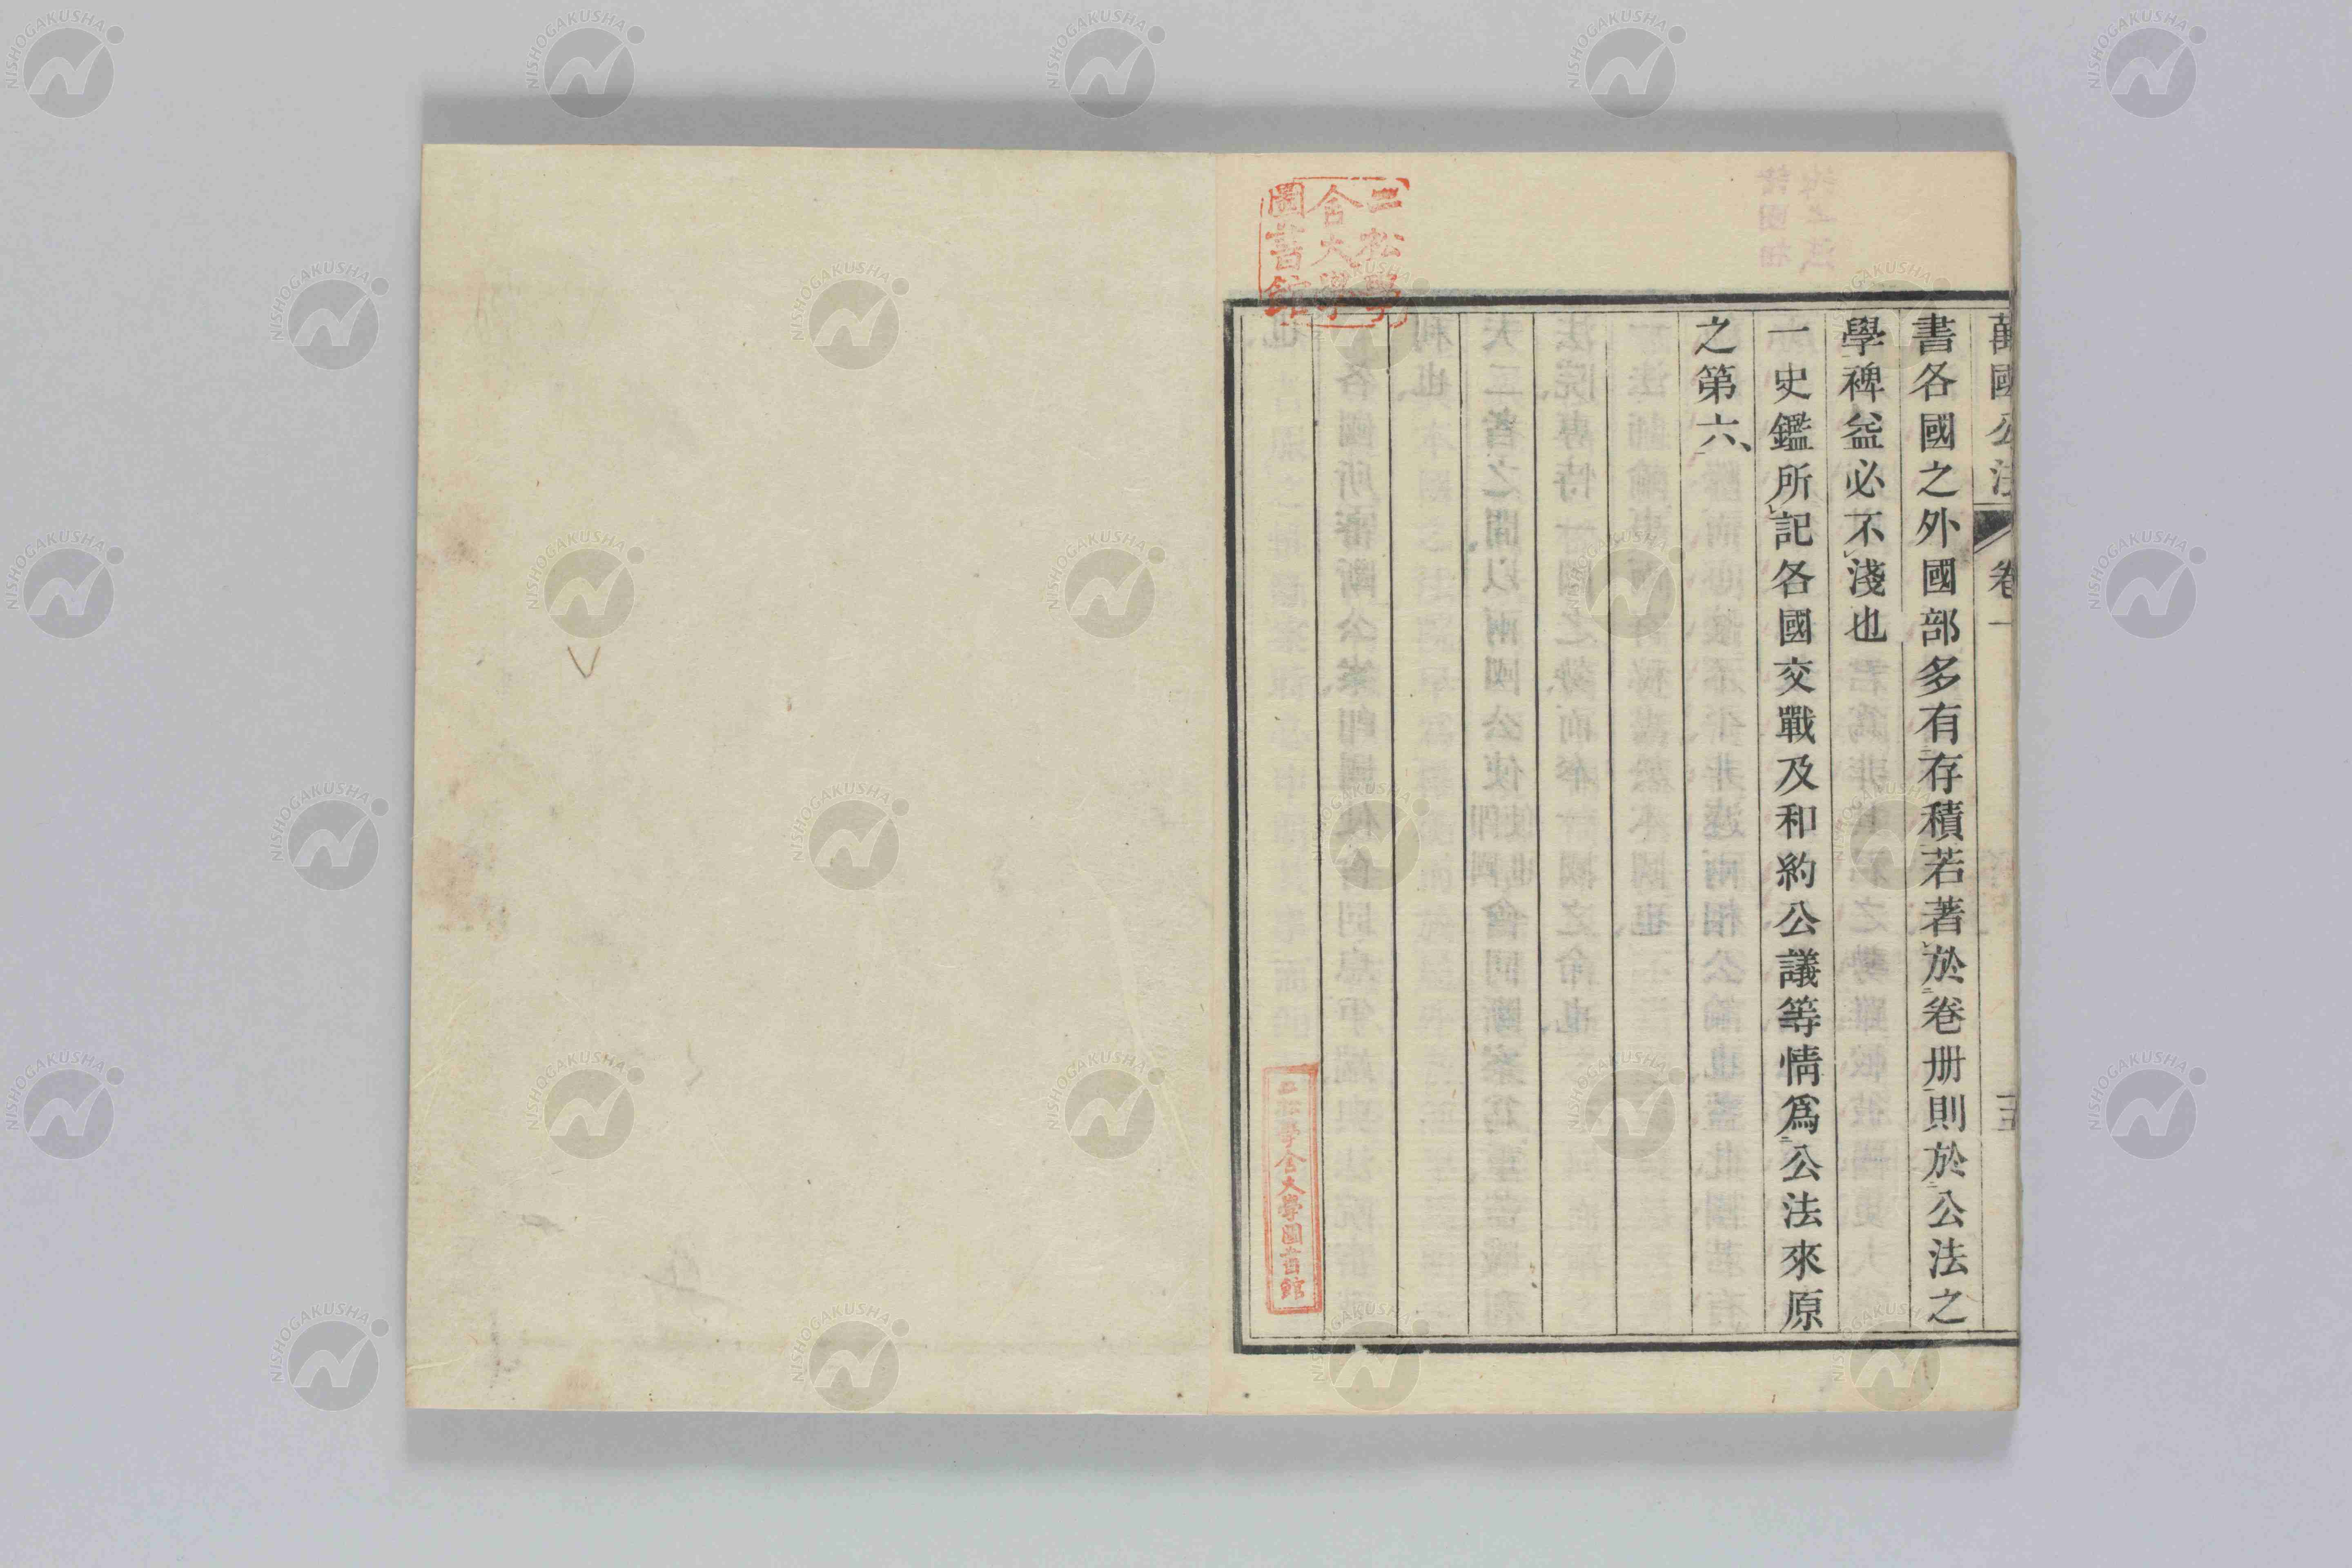 萬國公法 卷一
書各國之外國部多有存積若著於卷册則於公法之
學裨益必不淺也
一史鑑所記各國交戰及和約公議等情爲公法來原
之第六、
二松學
舍大學
圖書館
二松學舍大學圖書館
NISHOGAKUSHA